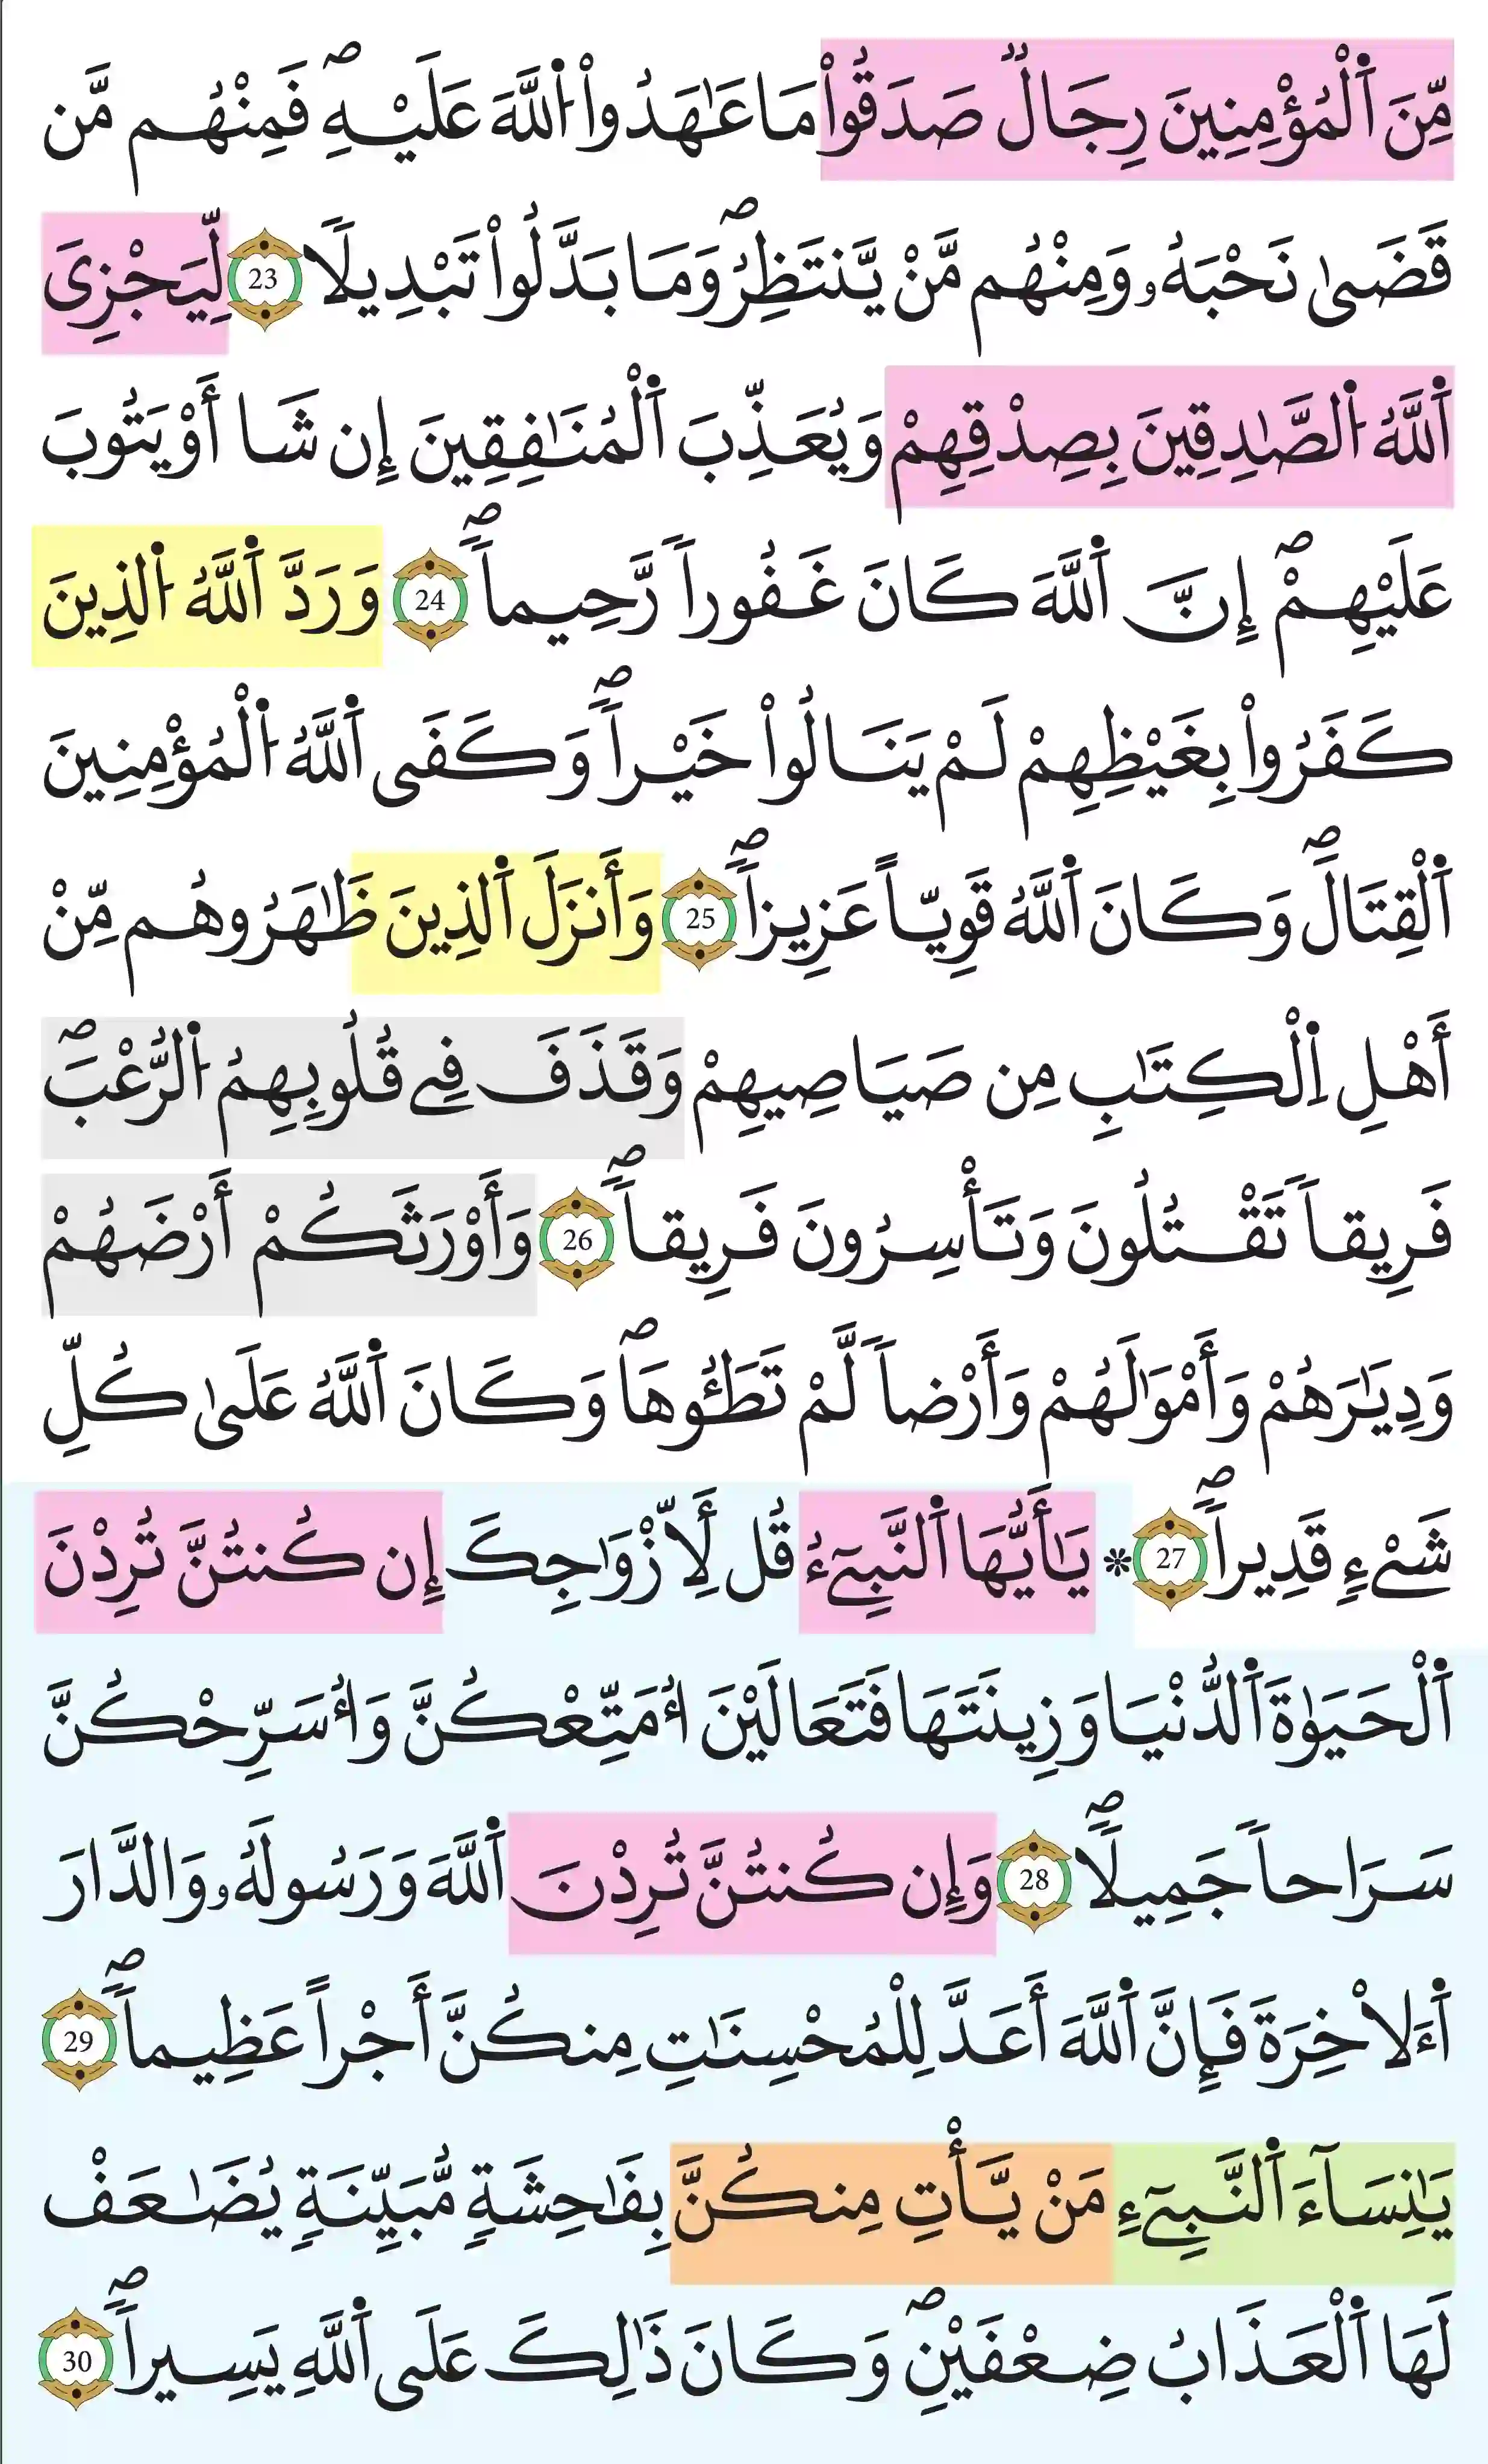 مِّنَ اَ۬لْمُؤْمِنِينَ رِجَالٞ صَدَقُواْ مَا عَٰهَدُواْ اُ۬للَّهَ عَلَيْهِۖ فَمِنْهُم مَّن
قَضَىٰ نَحْبَهُۥ وَمِنْهُم مَّنْ يَّنتَظِرُۖ وَمَا بَدَّلُواْ تَبْدِيلٗا 23 لِّيَجْزِيَ
اَ۬للَّهُ اُ۬لصَّٰدِقِينَ بِصِدْقِهِمْ وَيُعَذِّبَ اَ۬لْمُنَٰفِقِينَ إِن شَا أَوْ يَتُوبَ
عَلَيْهِمْۖ إِنَّ اَ۬للَّهَ كَانَ غَفُوراٗ رَّحِيماٗۖ 24 وَرَدَّ اَ۬للَّهُ اُ۬لذِينَ
كَفَرُواْ بِغَيْظِهِمْ لَمْ يَنَالُواْ خَيْراٗۖ وَكَفَى اَ۬للَّهُ اُ۬لْمُؤْمِنِينَ
اَ۬لْقِتَالَۖ وَكَانَ اَ۬للَّهُ قَوِيّاً عَزِيزاٗۖ 25 وَأَنزَلَ اَ۬لذِينَ ظَٰهَرُوهُم مِّنْ
أَهْلِ اِ۬لْكِتَٰبِ مِن صَيَاصِيهِمْ وَقَذَفَ فِے قُلُوبِهِمُ اُ۬لرُّعْبَۖ
فَرِيقاٗ تَقْتُلُونَ وَتَأْسِرُونَ فَرِيقاٗۖ 26 وَأَوْرَثَكُمْ أَرْضَهُمْ
وَدِيَٰرَهُمْ وَأَمْوَٰلَهُمْ وَأَرْضاٗ لَّمْ تَطَـُٔوهَاۖ وَكَانَ اَ۬للَّهُ عَلَىٰ كُلِّ
شَےْءٖ قَدِيراٗۖ 27 * يَٰأَيُّهَا اَ۬لنَّبِيٓءُ قُل لِّأَزْوَٰجِكَ إِن كُنتُنَّ تُرِدْنَ
اَ۬لْحَيَوٰةَ اَ۬لدُّنْيَا وَزِينَتَهَا فَتَعَالَيْنَ أُمَتِّعْكُنَّ وَأُسَرِّحْكُنَّ
سَرَاحاٗ جَمِيلٗاۖ 28 وَإِن كُنتُنَّ تُرِدْنَ اَ۬للَّهَ وَرَسُولَهُۥ وَالدَّارَ
اَ۬ءَلَاخِرَةَ فَإِنَّ اَ۬للَّهَ أَعَدَّ لِلْمُحْسِنَٰتِ مِنكُنَّ أَجْراً عَظِيماٗۖ 29
يَٰنِسَآءَ اَ۬لنَّبِيٓءِ مَنْ يَّأْتِ مِنكُنَّ بِفَٰحِشَةٖ مُّبَيِّنَةٖ يُضَٰعَفْ
لَهَا اَ۬لْعَذَابُ ضِعْفَيْنِۖ وَكَانَ ذَٰلِكَ عَلَى اَ۬للَّهِ يَسِيراٗۖ 30